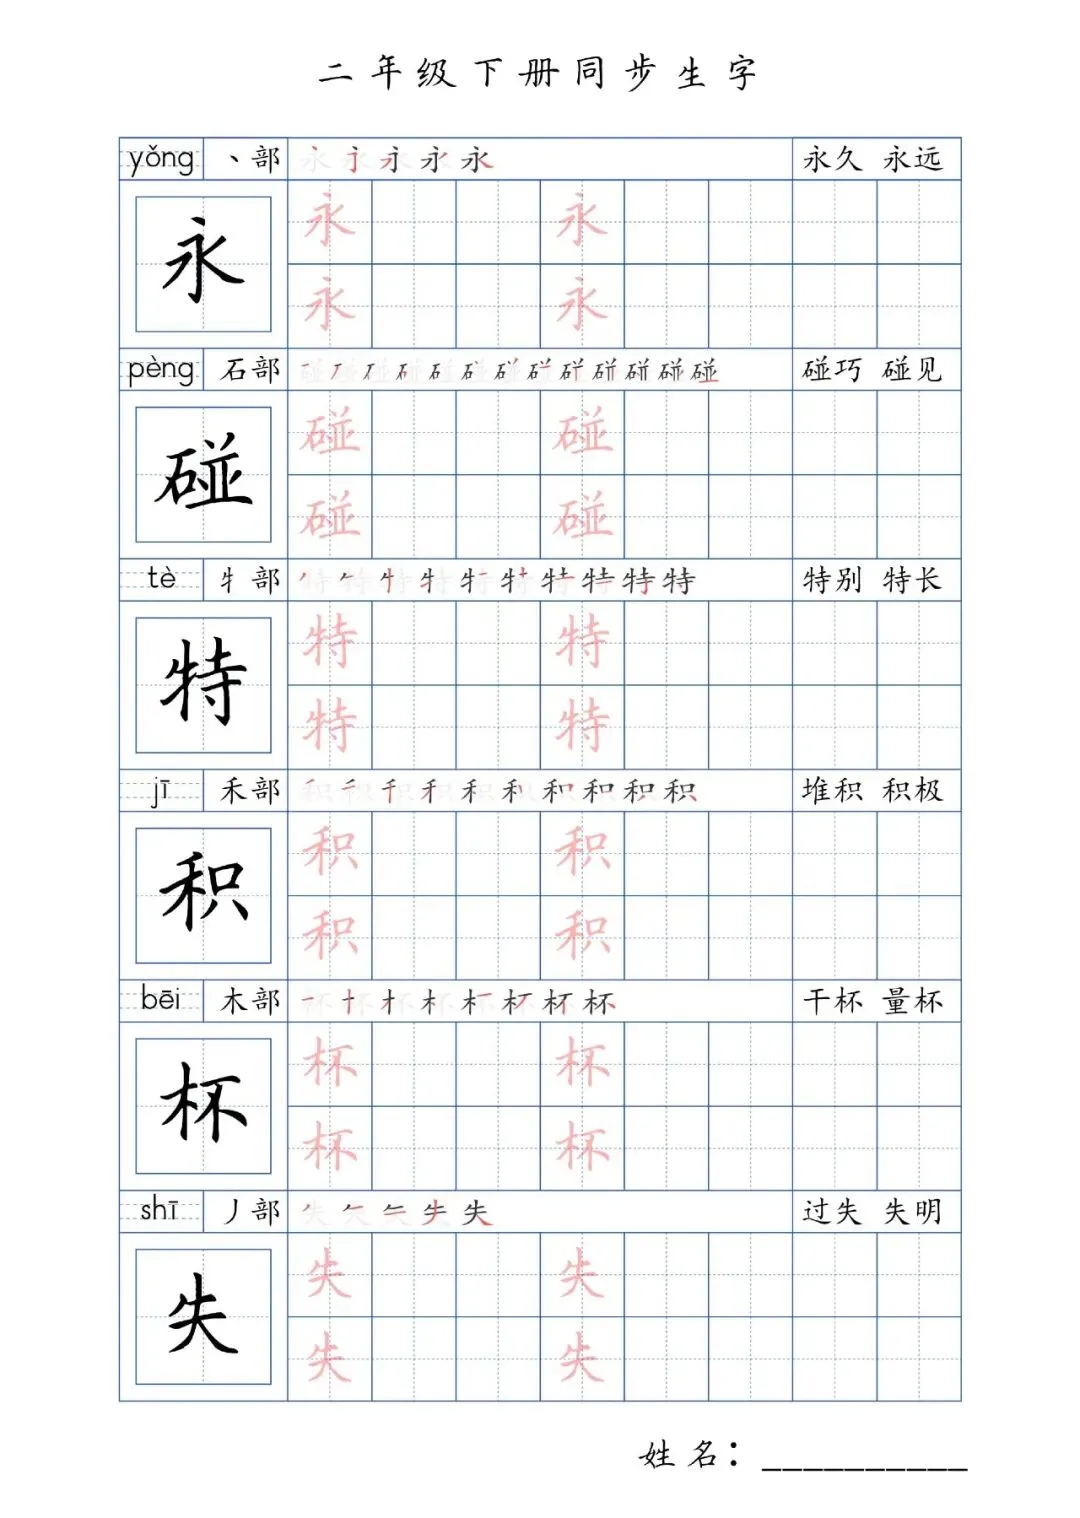 二年级下册同步生字
yǒng 丶部 永久 永远
永 永 永
永 永
pèng 石部 碰巧 碰见
碰 碰 碰
碰 碰
tè 牜部 特别 特长
特 特 特
特 特
jī 禾部 堆积 积极
积 积 积
积 积
bēi 木部 干杯 量杯
杯 杯 杯
杯 杯
shī 丿部 过失 失明
失 失 失
失 失
姓名：__________